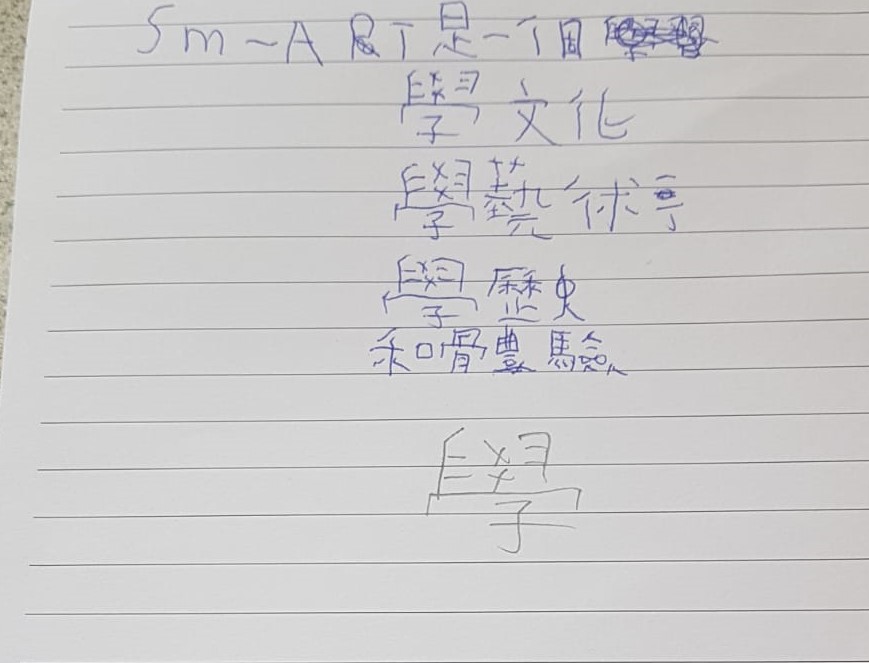 Sm~ART是一個
學文化
學藝術
學歷史
和體驗
學